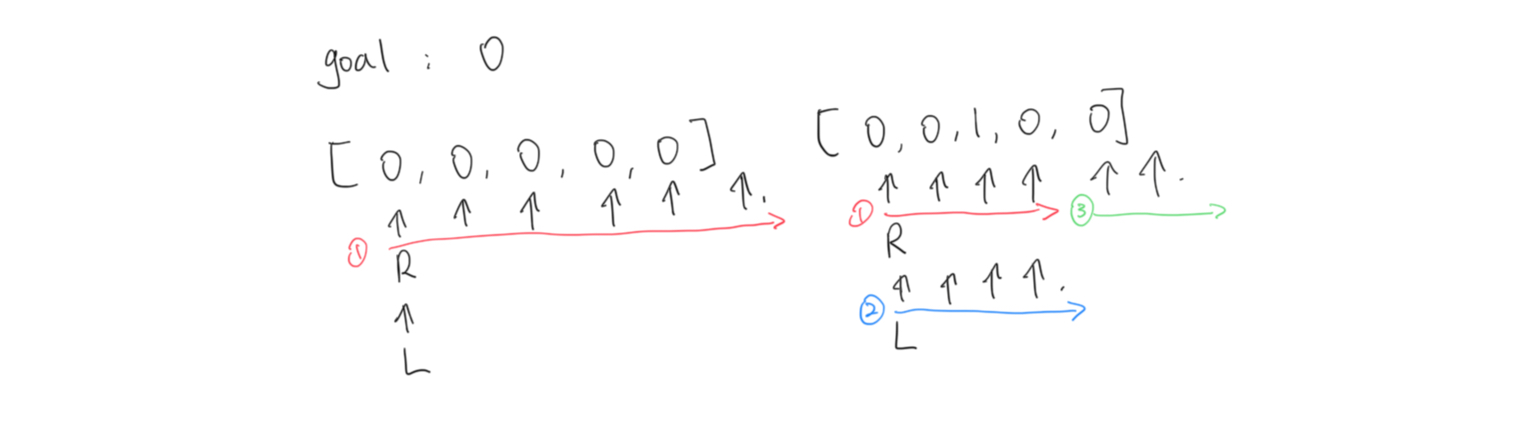 goal : 0
[ 0, 0, 0, 0, 0 ]
①
R
L
[ 0, 0, 1, 0, 0 ]
① ③
R
②
L